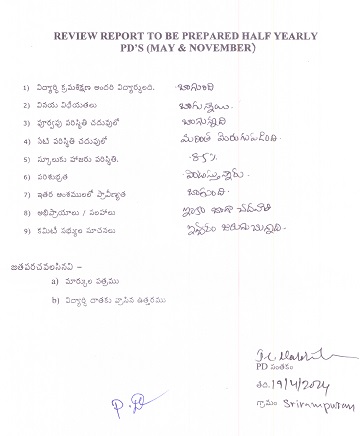 REVIEW REPORT TO BE PREPARED HALF YEARLY
PD'S (MAY & NOVEMBER)
1) విద్యార్థి క్రమశిక్షణ అందరి విద్యార్థులది. బాగుంది
2) వినయ విధేయతలు బాగున్నాయి.
3) పూర్వపు పరిస్థితి చదువులో బాగున్నది
4) ఏటి పరిస్థితి చదువులో మరింత మెరుగుపడింది.
5) స్కూలుకు హాజరు పరిస్థితి. 85%
6) పరిశుభ్రత పాటిస్తున్నారు.
7) ఇతర అంశములలో ప్రావీణ్యత బాగుంది.
8) అభిప్రాయాలు / సలహాలు ఇంకా బాగా చదవాలి
9) కమిటీ సభ్యుల సూచనలు జరుగుచున్నది.
జతపరచవలసినవి -
a) మార్కుల పత్రము
b) విద్యార్థి దాతకు వ్రాసిన ఉత్తరము
PD సంతకం
తేది. 19/4/2024
గ్రామం Srirampuram
P.D